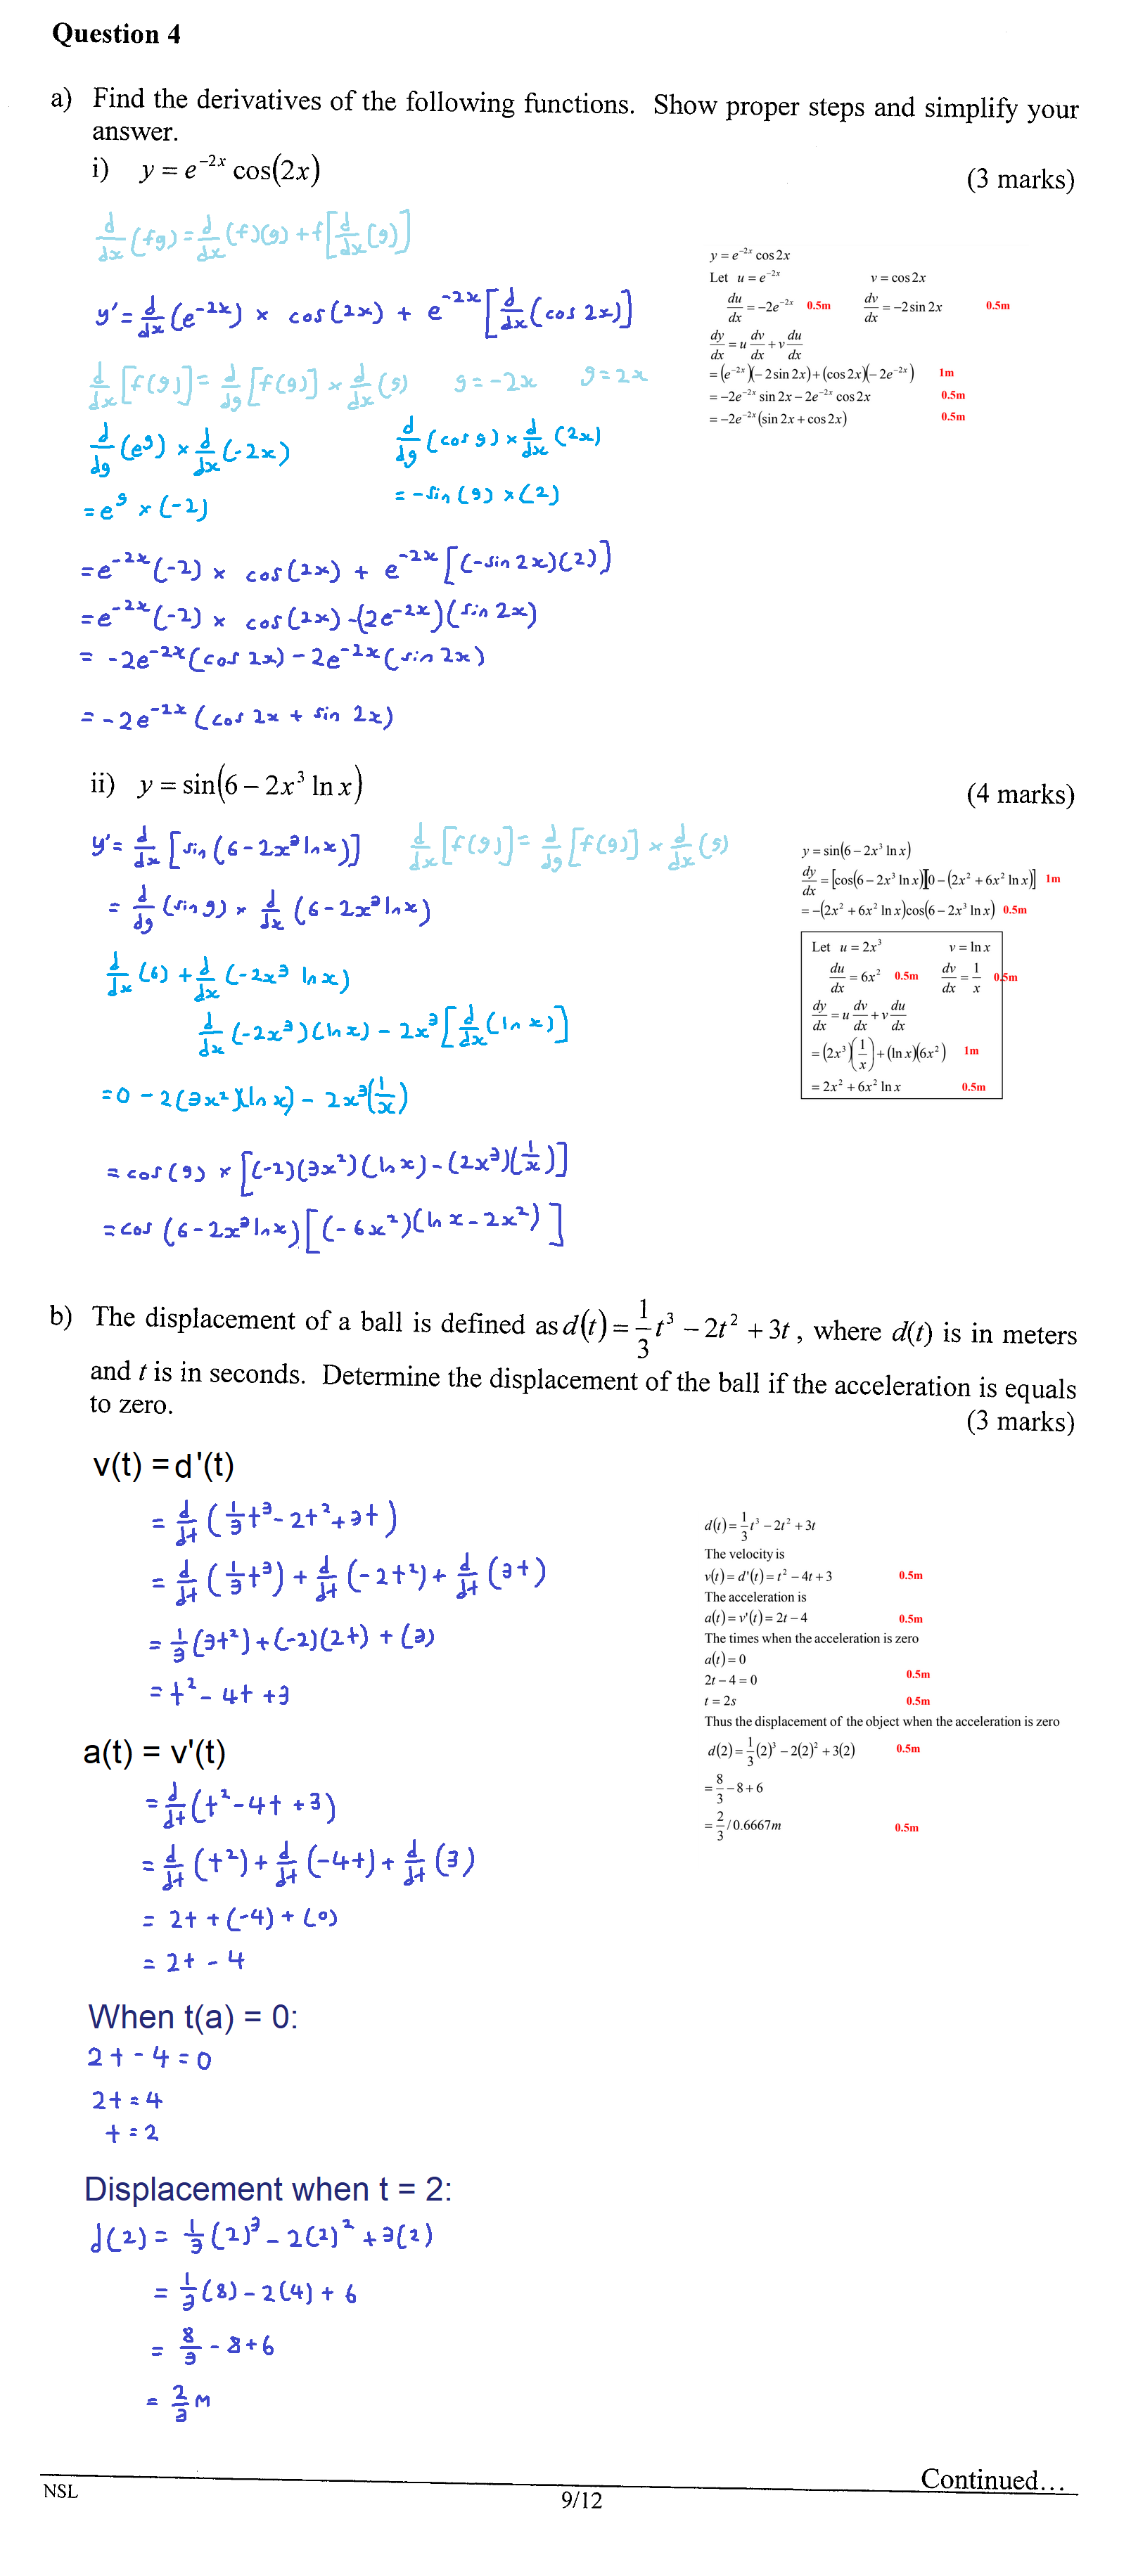 Question 4
a) Find the derivatives of the following functions. Show proper steps and simplify your
answer.
i) y = e^{-2x} cos(2x)
(3 marks)
d/dx (fg) = d/dx (f)(g) + f[d/dx (g)]
y' = d/dx (e^{-2x}) × cos(2x) + e^{-2x} [d/dx (cos 2x)]
d/dx [f(g)] = d/dg [f(g)] × d/dx (g) g = -2x g = 2x
d/dg (e^g) × d/dx (-2x) d/dg (cos g) × d/dx (2x)
= e^g × (-2) = -sin(g) × (2)
= e^{-2x} (-2) × cos(2x) + e^{-2x} [(-sin 2x)(2)]
= e^{-2x} (-2) × cos(2x) - (2e^{-2x})(sin 2x)
= -2e^{-2x} (cos 2x) - 2e^{-2x} (sin 2x)
= -2e^{-2x} (cos 2x + sin 2x)
y = e^{-2x} cos 2x
Let u = e^{-2x} v = cos 2x
du/dx = -2e^{-2x} 0.5m dv/dx = -2 sin 2x 0.5m
dy/dx = u dv/dx + v du/dx
= (e^{-2x})(-2 sin 2x) + (cos 2x)(-2e^{-2x}) 1m
= -2e^{-2x} sin 2x - 2e^{-2x} cos 2x 0.5m
= -2e^{-2x} (sin 2x + cos 2x) 0.5m
ii) y = sin(6 - 2x³ ln x)
(4 marks)
y' = d/dx [sin (6 - 2x³ ln x)] d/dx [f(g)] = d/dg [f(g)] × d/dx (g)
= d/dg (sin g) × d/dx (6 - 2x³ ln x)
d/dx (6) + d/dx (-2x³ ln x)
d/dx (-2x³)(ln x) - 2x³ [d/dx (ln x)]
= 0 - 2(3x²)(ln x) - 2x³(1/x)
= cos(g) × [(-2)(3x²)(ln x) - (2x³)(1/x)]
= cos (6 - 2x³ ln x) [(-6x²)(ln x - 2x²)]
y = sin(6 - 2x³ ln x)
dy/dx = [cos(6 - 2x³ ln x)][0 - (2x² + 6x² ln x)] 1m
= -(2x² + 6x² ln x)cos(6 - 2x³ ln x) 0.5m
Let u = 2x³ v = ln x
du/dx = 6x² 0.5m dv/dx = 1/x 0.5m
dy/dx = u dv/dx + v du/dx
= (2x³)(1/x) + (ln x)(6x²) 1m
= 2x² + 6x² ln x 0.5m
b) The displacement of a ball is defined as d(t) = 1/3 t³ - 2t² + 3t, where d(t) is in meters
and t is in seconds. Determine the displacement of the ball if the acceleration is equals
to zero.
(3 marks)
v(t) = d'(t)
= d/dt (1/3 t³ - 2t² + 3t)
= d/dt (1/3 t³) + d/dt (-2t²) + d/dt (3t)
= 1/3 (3t²) + (-2)(2t) + (3)
= t² - 4t + 3
a(t) = v'(t)
= d/dt (t² - 4t + 3)
= d/dt (t²) + d/dt (-4t) + d/dt (3)
= 2t + (-4) + (0)
= 2t - 4
When t(a) = 0:
2t - 4 = 0
2t = 4
t = 2
Displacement when t = 2:
d(2) = 1/3 (2)³ - 2(2)² + 3(2)
= 1/3 (8) - 2(4) + 6
= 8/3 - 8 + 6
= 2/3 m
d(t) = 1/3 t³ - 2t² + 3t
The velocity is
v(t) = d'(t) = t² - 4t + 3 0.5m
The acceleration is
a(t) = v'(t) = 2t - 4 0.5m
The times when the acceleration is zero
a(t) = 0
2t - 4 = 0 0.5m
t = 2s 0.5m
Thus the displacement of the object when the acceleration is zero
d(2) = 1/3 (2)³ - 2(2)² + 3(2) 0.5m
= 8/3 - 8 + 6
= 2/3 / 0.6667m 0.5m
Continued...
NSL
9/12